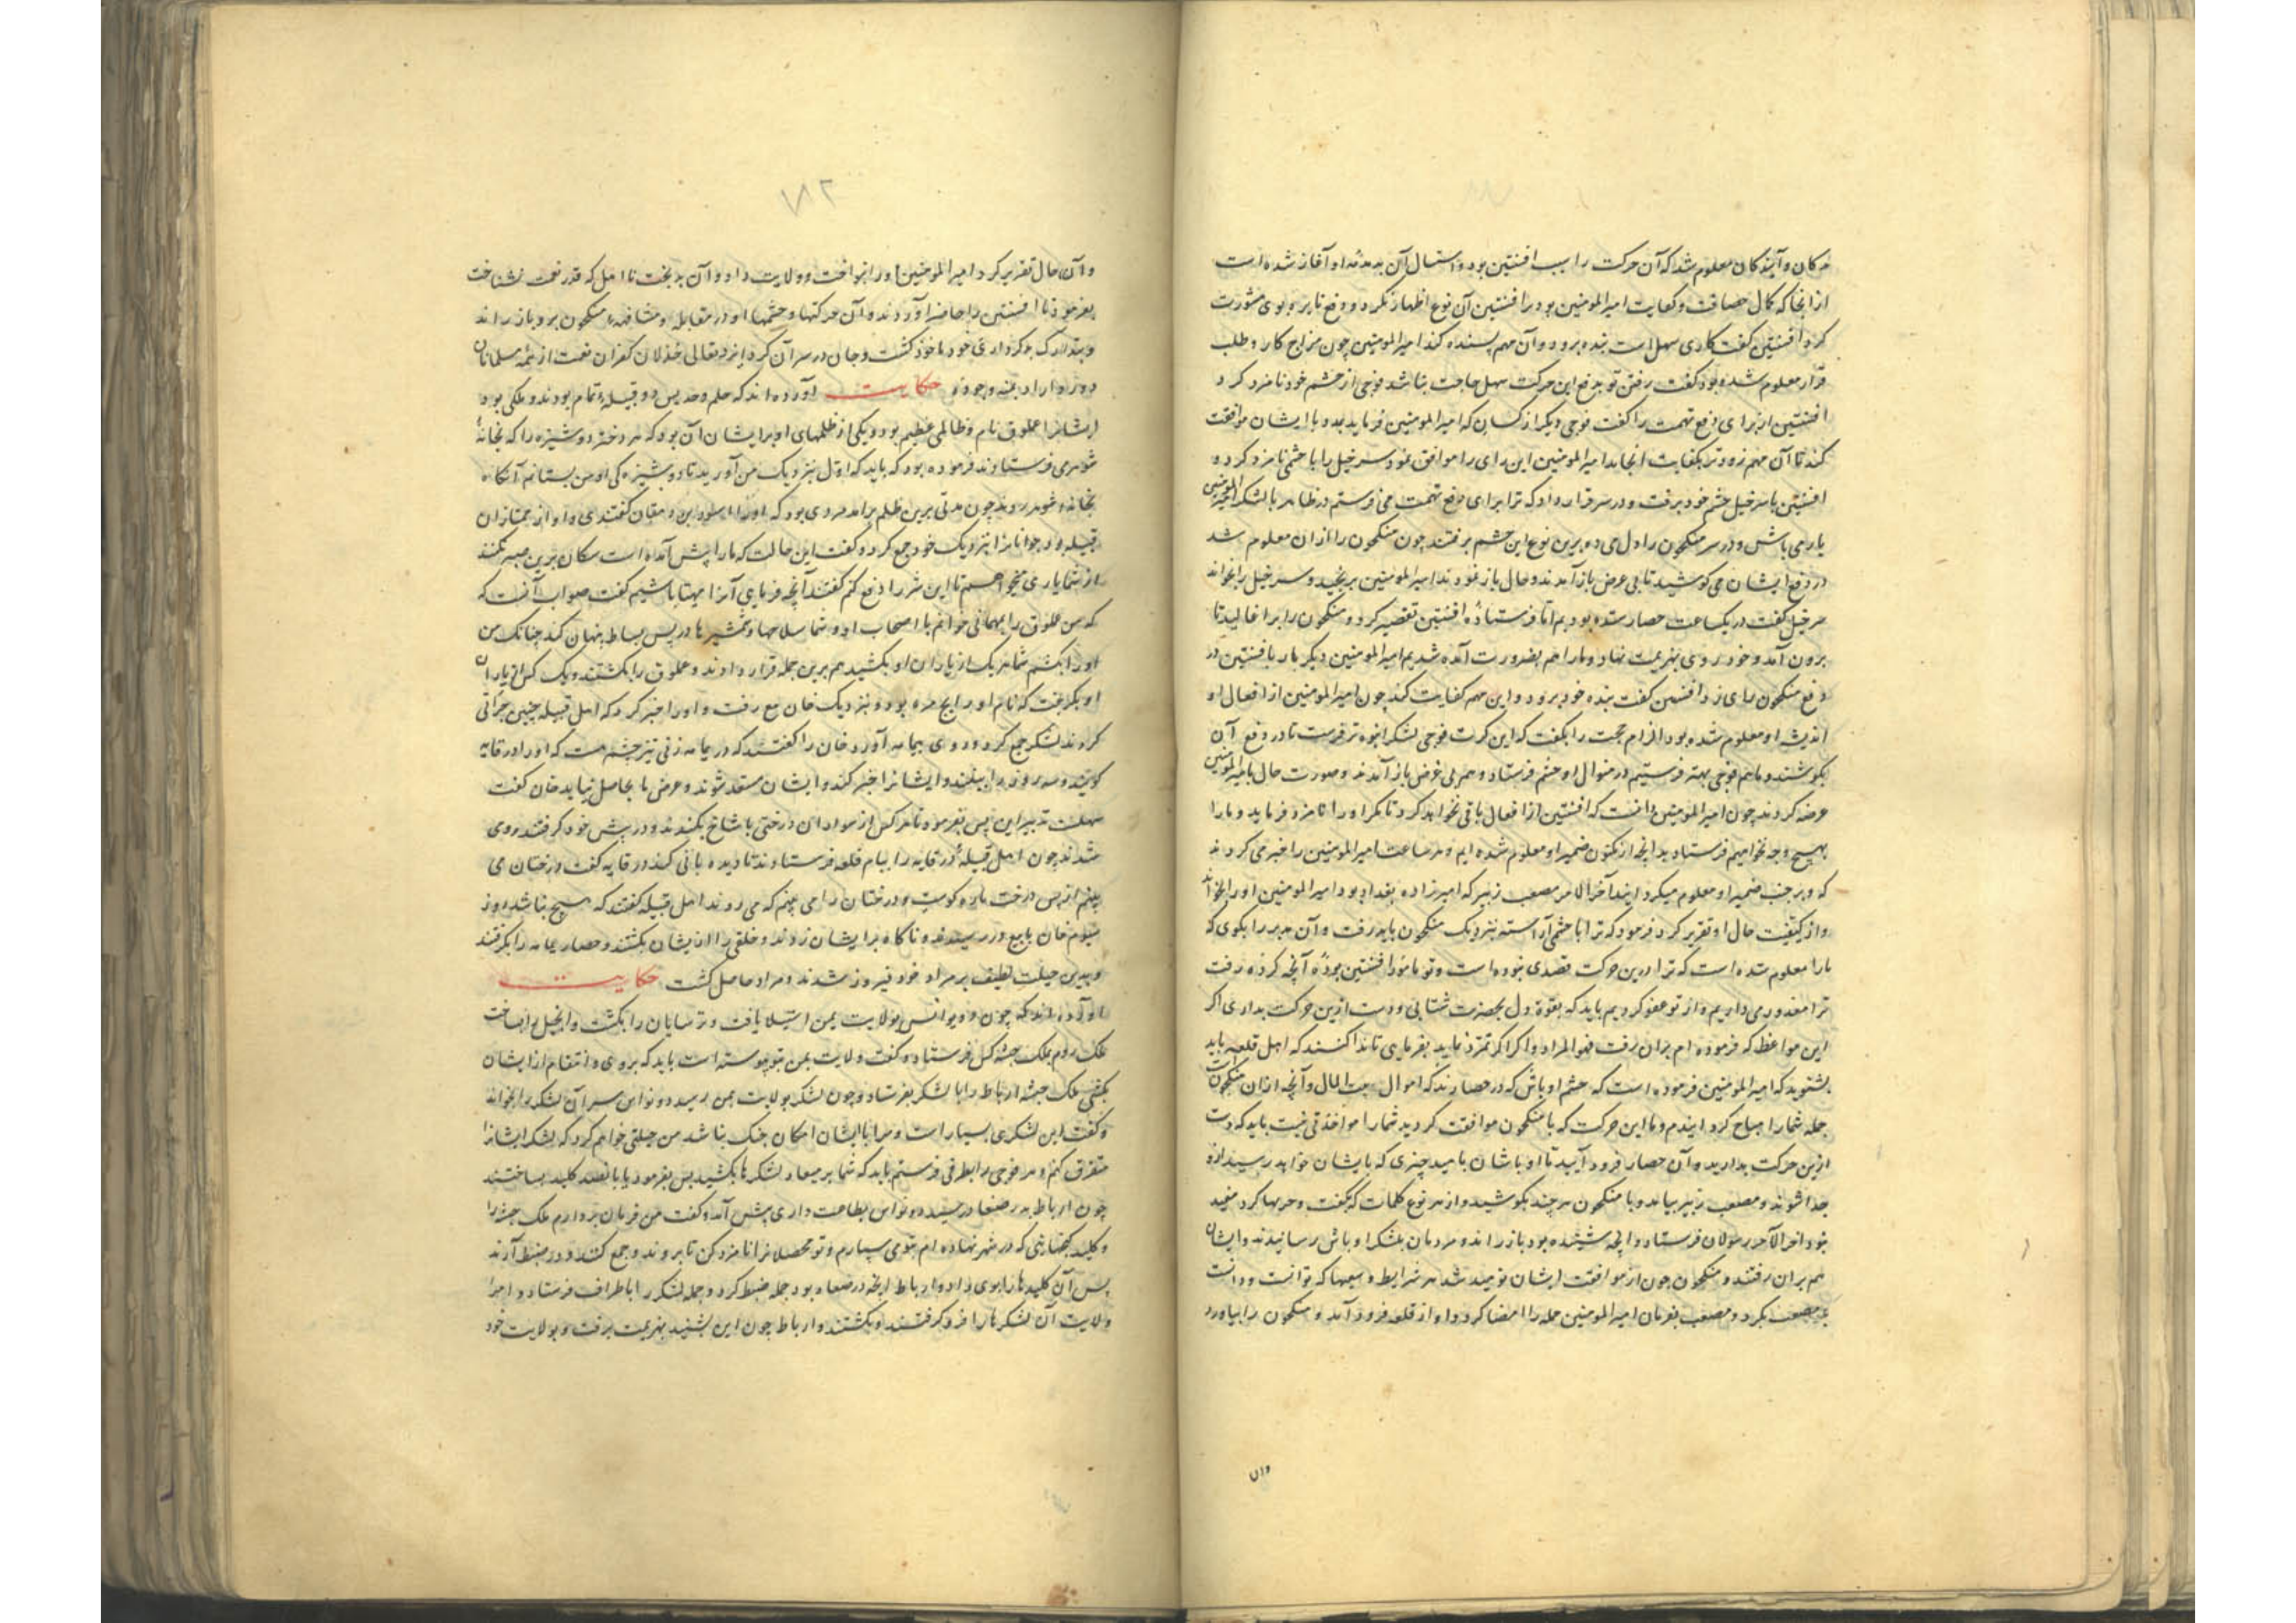 کان و آیندکان معلوم شد که آن حرکت را سبب افشین بود و استمال آن به او آغاز شده است
از انجا که کمال حصافت و کفایت امیر المومنین بود بر افشین آن نوع اظهار نکرد و دفع را بروی مشورت
کرد افشین گفت کاری سهل است بنده برود و آن مهم پسنده کند امیر المومنین چون مزاج کار و طلب
قرار معلوم شده بود گفت رفتن تو بدفع این حرکت سهل حاجت نباشد فوجی از حشم خود نامزد کرد
افشین از برای دفع تهمت را گفت فوجی دیگر از کسان که امیر المومنین فرماید بدو با ایشان موافقت
کند تا آن مهم زودتر بکفایت انجامد امیر المومنین این رای را موافق نمود سرخیل را با حشمی نامزد کرد و
افشین با سرخیل حشم خود برفت و در سر قرار داد که ترا برای دفع تهمت می فرستم در ظاهر با لشکر امیر المومنین
یار می باش و در سر منکجون را دل می ده برین نوع این حشم برفتند چون منکجون را ازان معلوم شد
در دفع ایشان می کوشید تا بی غرض باز آمدند و حال باز نمودند امیر المومنین برنجید و سرخیل را بخواند
سرخیل گفت در یکساعت حصار ستده بودیم اما فرستاده افشین تقصیر کرد و منکجون را بر اغالید تا
برون آمد و خود روی بهزیمت نهاد و ما را هم بضرورت آمده شدیم امیر المومنین دیگر بار با افشین در
دفع منکجون رای زد افشین گفت بنده خود برود و این مهم کفایت کند چون امیر المومنین از افعال او
اندیشه او معلوم شده بود الزام حجت را بگفت که این کرت فوجی لشکر انبوه تر فرست تا در دفع آن
بکوشند و ما هم فوجی بهتر فرستیم در منوال او حشم فرستاد و هم بی غرض باز آمدند و صورت حال بامیر المومنین
عرضه کردند چون امیر المومنین دانست که افشین از افعال باقی نخواهد کرد تا مکر او را نامزد فرماید و ما را
بهیچ وجه نخواهیم فرستاد بدانچه از مکنون ضمیر او معلوم شده ایم و هر ساعت امیر المومنین را خبر می کردند
که و بر خبث ضمیر او معلوم میکرد ایند آخر الامر مصعب زبیر که امیر زاده بغداد بود امیر المومنین او را بخواند
و از کیفیت حال او تقریر کرد فرمود که ترا با حشمی آراسته بنزدیک منکجون باید رفت و آن مدبر را بکوی که
ما را معلوم شده است که ترا درین حرکت قصدی نبوده است و تو مامور افشین بوده آنچه کرده رفت
ترا معذور می داریم و از تو عفو کردیم باید که بقوة دل بحضرت شتابی و دست ازین حرکت بداری اکر
این مواعظ که فرموده ام بران رفت فهو المراد و اکر اکر تمرد نماید بفرمای تا ندا کنند که اهل قلعه باید
بشنوید که امیر المومنین فرموده است که حشم اوباش که در حصارند که اموال بیت المال و آنچه ازان منکجون
جمله شما را مباح کردانیدم و ما این حرکت که با منکجون موافقت کردید شما را مواخذتی نیست باید که دست
ازین حرکت بدارید و آن حصار فرود آیید تا اوباشان بامید چیزی که بایشان خواهد رسید ازو
جدا شوند و مصعب زبیر بیامد و با منکجون هر چند بکوشید و از هر نوع کلمات که گفت و حربها کرد مفید
نبود اخر الامر رسولان فرستاد و انچه شنیده بود باز راند و مردمان بلشکر اوباش رسانیدند و ایشان
هم بران رفتند و منکجون چون از موافقت ایشان نومید شد هر شرایط و سعیها که توانست و دانست
مصعب بکرد و مصعب بفرمان امیر المومنین جمله را امضا کرد و او از قلعه فرود آمد و منکجون را بیاورد
وان
۱۸۲
و آن حال تقریر کرد امیر المومنین او را بنواخت و ولایت داد و آن بدبخت نا اهل که قدر نعمت نشناخت
بفرمود تا افشین را حاضر آوردند و آن حرکتها و حشمها او در مقابله و مشافهه منکجون برو باز راند
و بتدارک بد کرداری خود ماخوذ گشت و جان در سر آن کرد ایزد تعالی خذلان کفران نعمت از همه مسلمانان
دور دارد بمنه وجوده حکایت آورده اند که حلم و جدیس دو قبیله تمام بودند و ملکی بود
ایشانرا عملوق نام و ظالمی عظیم بود و یکی از ظلمهای او بر ایشان آن بود که هر دختر دوشیزه را که بخانهٔ
شوهری فرستادند فرموده بود که باید که اول بنزدیک من آورید تا دوشیزه کی او من بستانم آنکاه
بخانه شوهر رود چون مدتی برین ظلم برآمد مردی بود که او را اسود بن دمقان گفتندی و او از ممتازان
قبیله بود جوانانرا بنزدیک خود جمع کرد و گفت این حالت که ما را پیش آمده است سکان برین صبر نکنند
از شما یاری میخواهم تا این شر را دفع کنم گفتند آنچه فرمایی آنرا مهیا باشیم گفت صواب آنست که
که من عملوق را بمهمانی خوانم با اصحاب او و شما سلاحها و شمشیرها در پس بساط پنهان کند چنانک من
او را بکشم شما هر یک از یاران او بکشید هم برین جمله قرار دادند و عملوق را بکشتند و یک کس از یاران
او بکریخت که نام او رباح مره بود و بنزدیک خان تبع رفت و او را خبر کرد که اهل قبیله چنین جراتی
کردند لشکر جمع کرد و روی بیمامه آورد خان را گفتند که در یمامه زنی تیز چشم هست که او را زرقایه
کویند و سه روزه راه ببیند و ایشانرا خبر کند و ایشان مستعد شوند و غرض ما بحاصل نیاید خان گفت
سهلست تدبیر این پس بفرمود تا هر کس از سواران درختی با شاخ بکندند و در پیش خود کرفتند روی
شدند چون اهل قبیله زرقایه را ببام قلعه فرستادند تا دیده بانی کند زرقایه گفت درختان می
بینم از پس درخت ماره کوسب و درختان را می بینم که می روند اهل قبیله گفتند که هیچ نباشد روز
سیوم خان تابع در رسید و ناگاه بر ایشان زدند و خلقی را از ایشان بکشتند و حصار یمامه را بکرفتند
و بدین حیلت لطیف بر مراد خود فیروز شدند و مراد حاصل گشت حکایت
آورده اند که چون ذو نواس بولایت یمن استیلا یافت و ترسایان را بکشت و انجیل را بسوخت
ملک روم بملک حبشه کس فرستاد و گفت ولایت یمن بتو پیوسته است باید که بروی و انتقام از ایشان
بکشی ملک حبشه ارباط را با لشکر بفرستاد و چون لشکر بولایت یمن رسید ذو نواس سر آن لشکر را بخواند
و گفت این لشکری بسیار است و مرا با ایشان امکان جنک نباشد من حیلتی خواهم کرد که لشکر ایشانرا
متفرق کنم و هر فوجی را بطرفی فرستم باید که شما بر میعاد لشکرها بکشید پس بفرمود تا پانصد کلید بساختند
چون ارباط بدر صنعا رسید ذو نواس بطاعت داری پیش آمد و گفت من فرمان بردارم ملک حبشه را
و کلید کنجهایی که در شهر نهاده ام بتو می سپارم و تو محصلانرا نامزد کن تا بروند و جمع کنند و در ضبط آرند
پس آن کلیدها را بوی داد و ارباط انچه در صنعا بود جمله ضبط کرد و جمله لشکر را باطراف فرستاد و امرا
ولایت آن لشکرها را فرو کرفتند و بکشتند و ارباط چون این بشنید بهزیمت برفت و بولایت خود